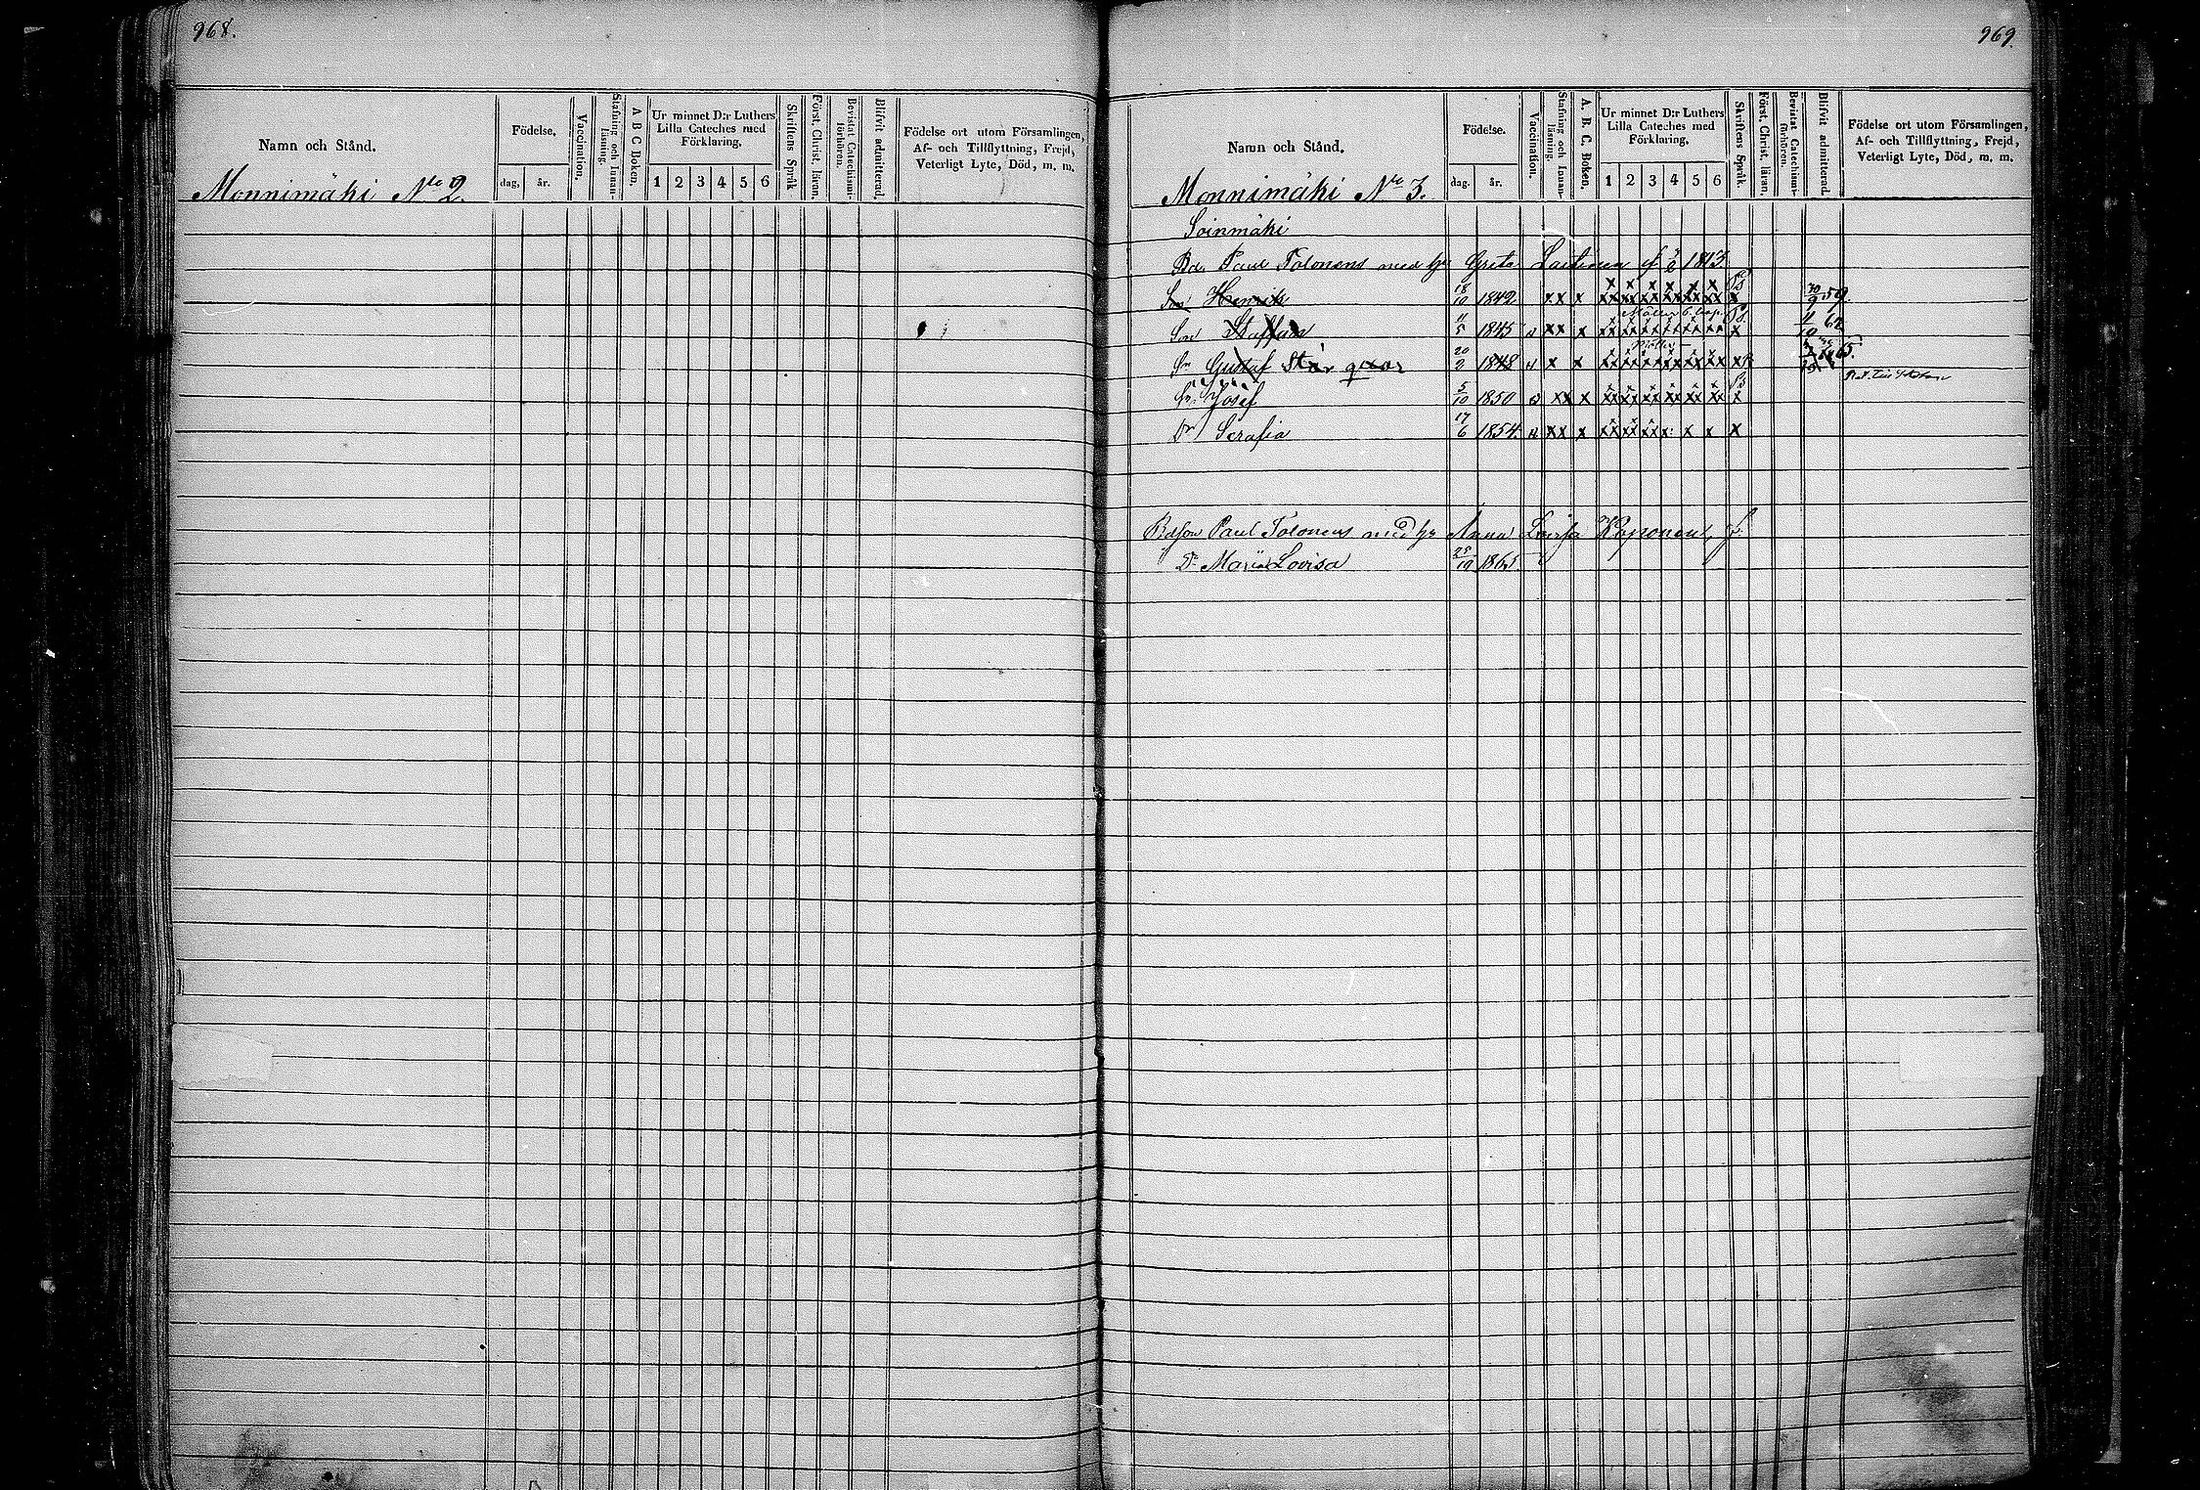 968.
Namn och Stånd.
Födelse.
dag. år.
Vaccination.
Stafning och Innan-läsning.
A B C Boken.
Ur minnet D:r Luthers
Lilla Cateches med
Förklaring.
1 2 3 4 5 6
Skriftens Språk
Först. Christ. läran.
Bevistat Catechismi-förhören.
Blifvit admitterad.
Födelse ort utom Församlingen,
Af- och Tillflyttning, Frejd,
Veterligt Lyte, Död, m. m.
Monnimäki No 2.
969.
Namn och Stånd.
Födelse.
dag. år.
Vaccination.
Stafning och Innan-läsning.
A. B. C. Boken.
Ur minnet D:r Luthers
Lilla Cateches med
Förklaring.
1 2 3 4 5 6
Skriftens Språk.
Först. Christ. läran.
Bevistat Catechismi-förhören.
Blifvit admitterad.
Födelse ort utom Församlingen,
Af- och Tillflyttning, Frejd,
Veterligt Lyte, Död, m. m.
Monnimäki No 3.
Soinmäki
Bd. Paul Tolonens med h. Greta Laitinen 1813
Son Henrik 18/10 1842 xx x x 59.
Son Staffan 11/5 1845 xx x x 62
Sn Gustaf Står qvar 20/2 1848 x x 65.
Sn Josef 5/10 1850 xx x x
Dr Serafia 17/6 1854. xx x x
Bdson Paul Tolonens med h Anna Lovisa Koponen
Dr Maria Lovisa 25/10 1865